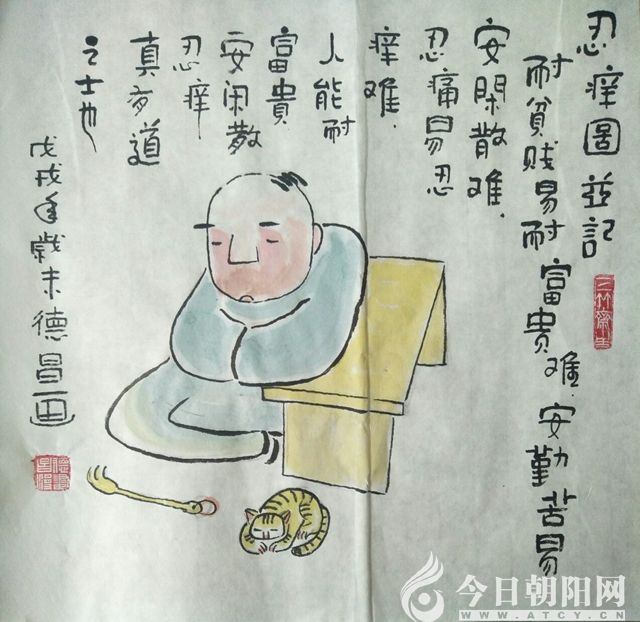 忍痒圖並記
耐貧贱易耐富貴难.安勤苦易
安閑散难.
忍痛易忍
痒难.
人能耐
富貴
安闲散
忍痒
真有道
之士也
戊戌年歲末德昌画
今日朝阳网
WWW.ATCY.CN